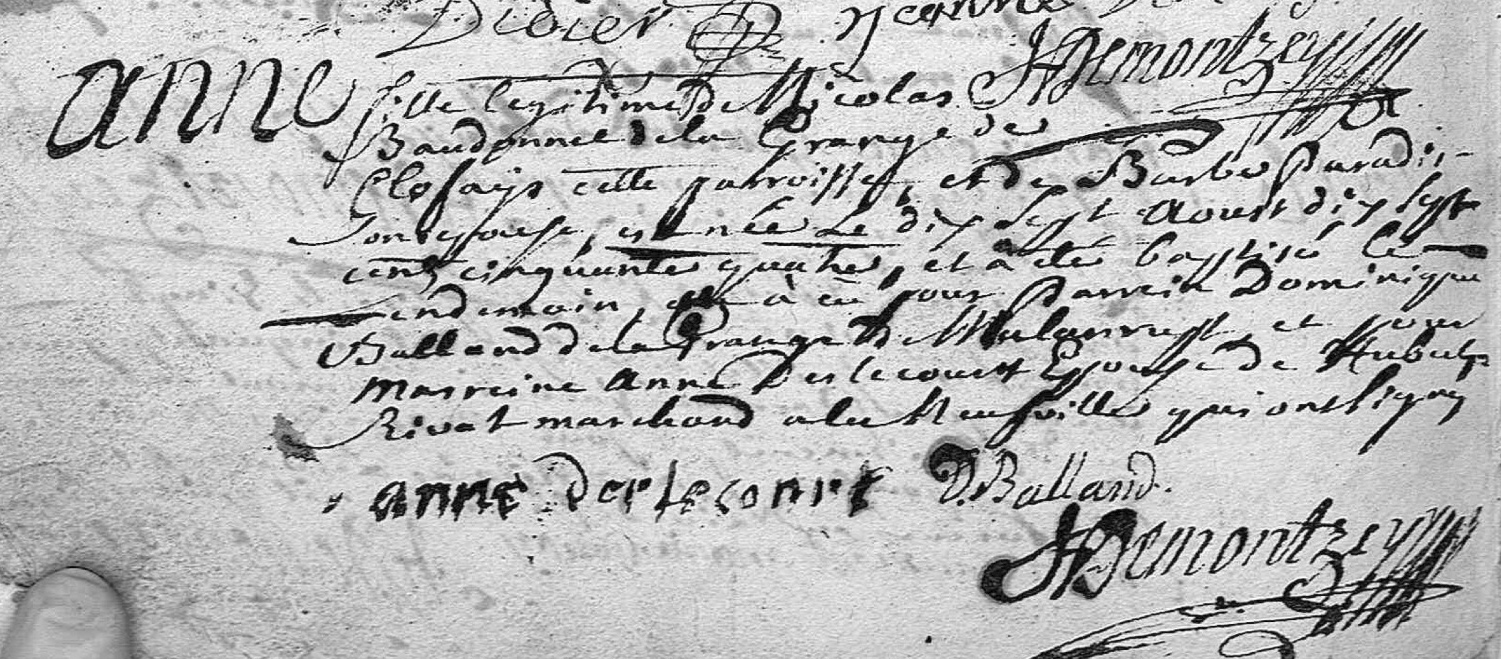 Didier Jeanne
JHDemontzey
anne fille legitime de Nicolas
Baudonnel de la Grange de
Closays cette parroisse, et de Barbe Paradis
son epouse, est née le dix sept aoust dix sept
cent cinquante quatre, et a eté baptisé le
lendemain, et à eü pour Parrein Dominique
Balland de la Grange de et pour
marreine anne Derlecourt Epouse de Hubert
Rivat marchand a la Neufville qui ont signez
anne derlecourt D. Balland.
JHDemontzey